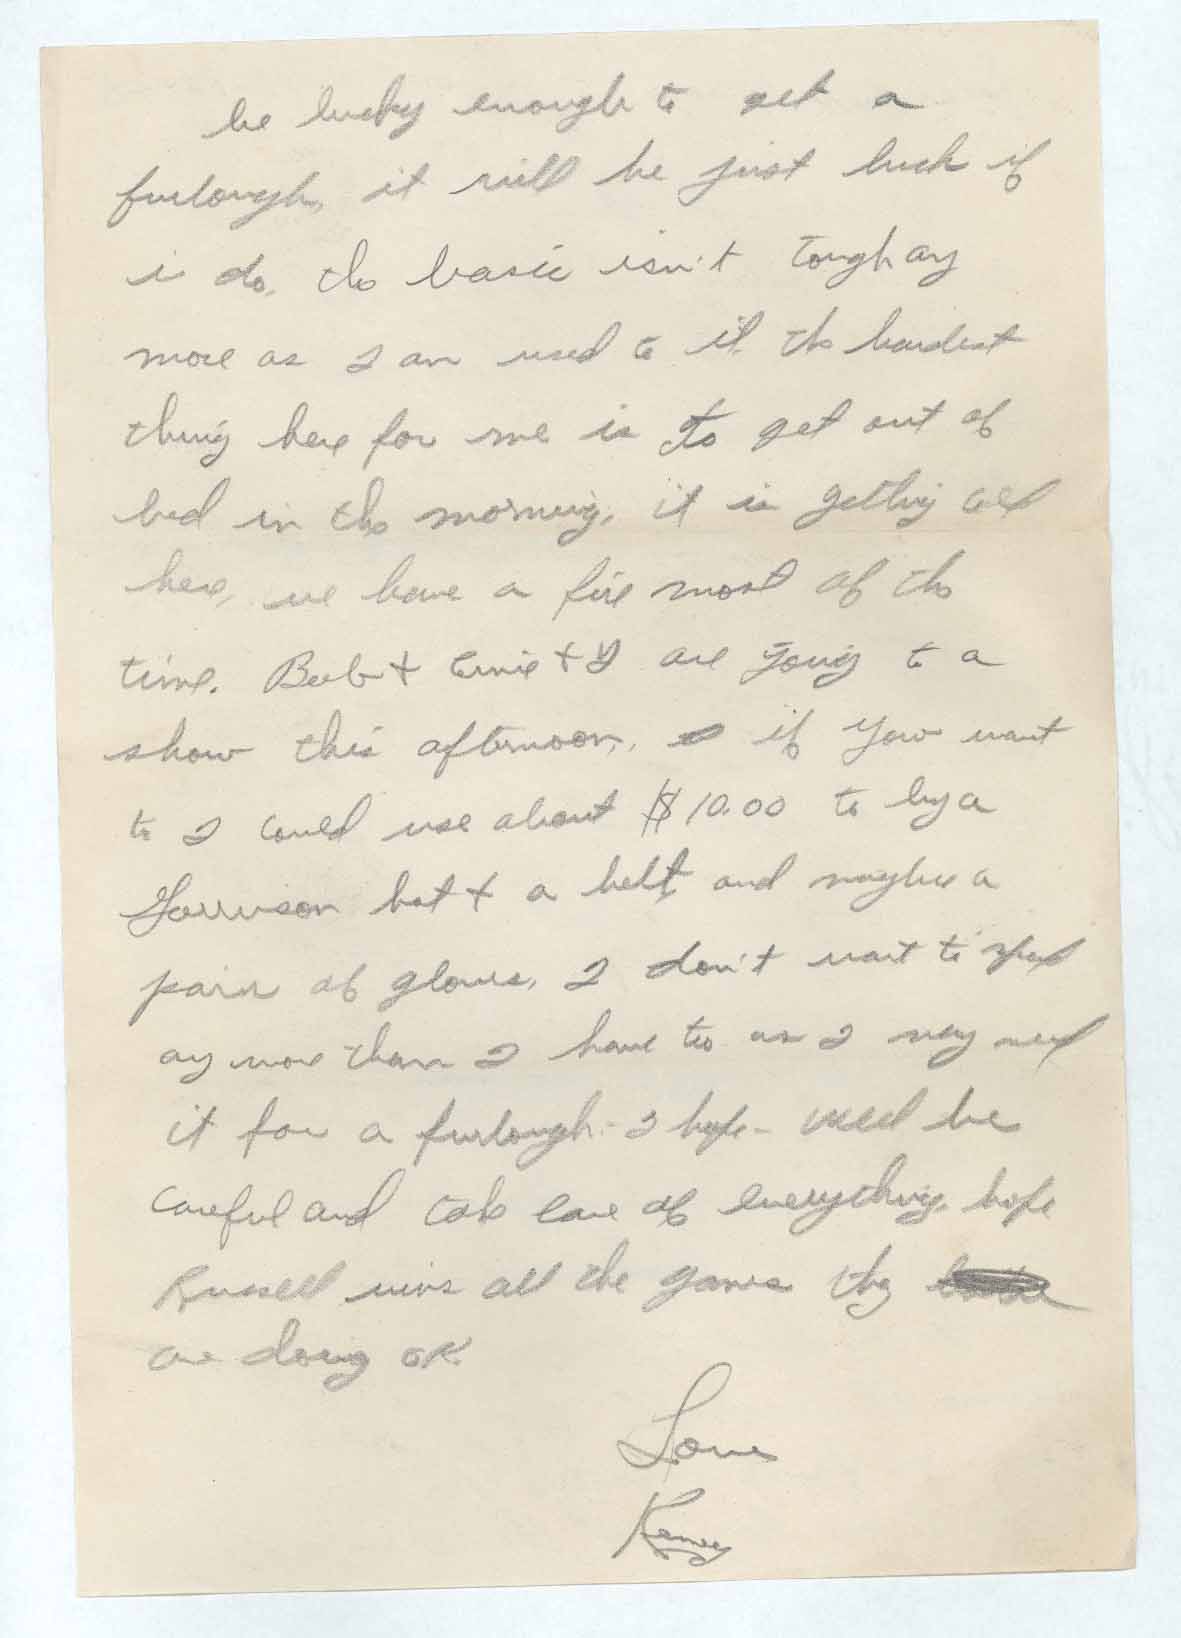 be lucky enough to get a
furlough, it will be just luck if
i do. the basic isn't tough any
more as I am used to it. the hardest
thing here for me is to get out of
bed in the morning, it is getting cold
here, we have a fire most of the
time. Bub + Ernie + I are going to a
show this afternoon, if you want
to I could use about $10.00 to by a
Garrison hat + a belt, and maybe a
pair of gloves, I don't want to spend
any more than I have to as I may need
it for a furlough - I hope - well be
careful and take care of everything, hope
Russell wins all the games they
are doing OK.
Love
Kenny